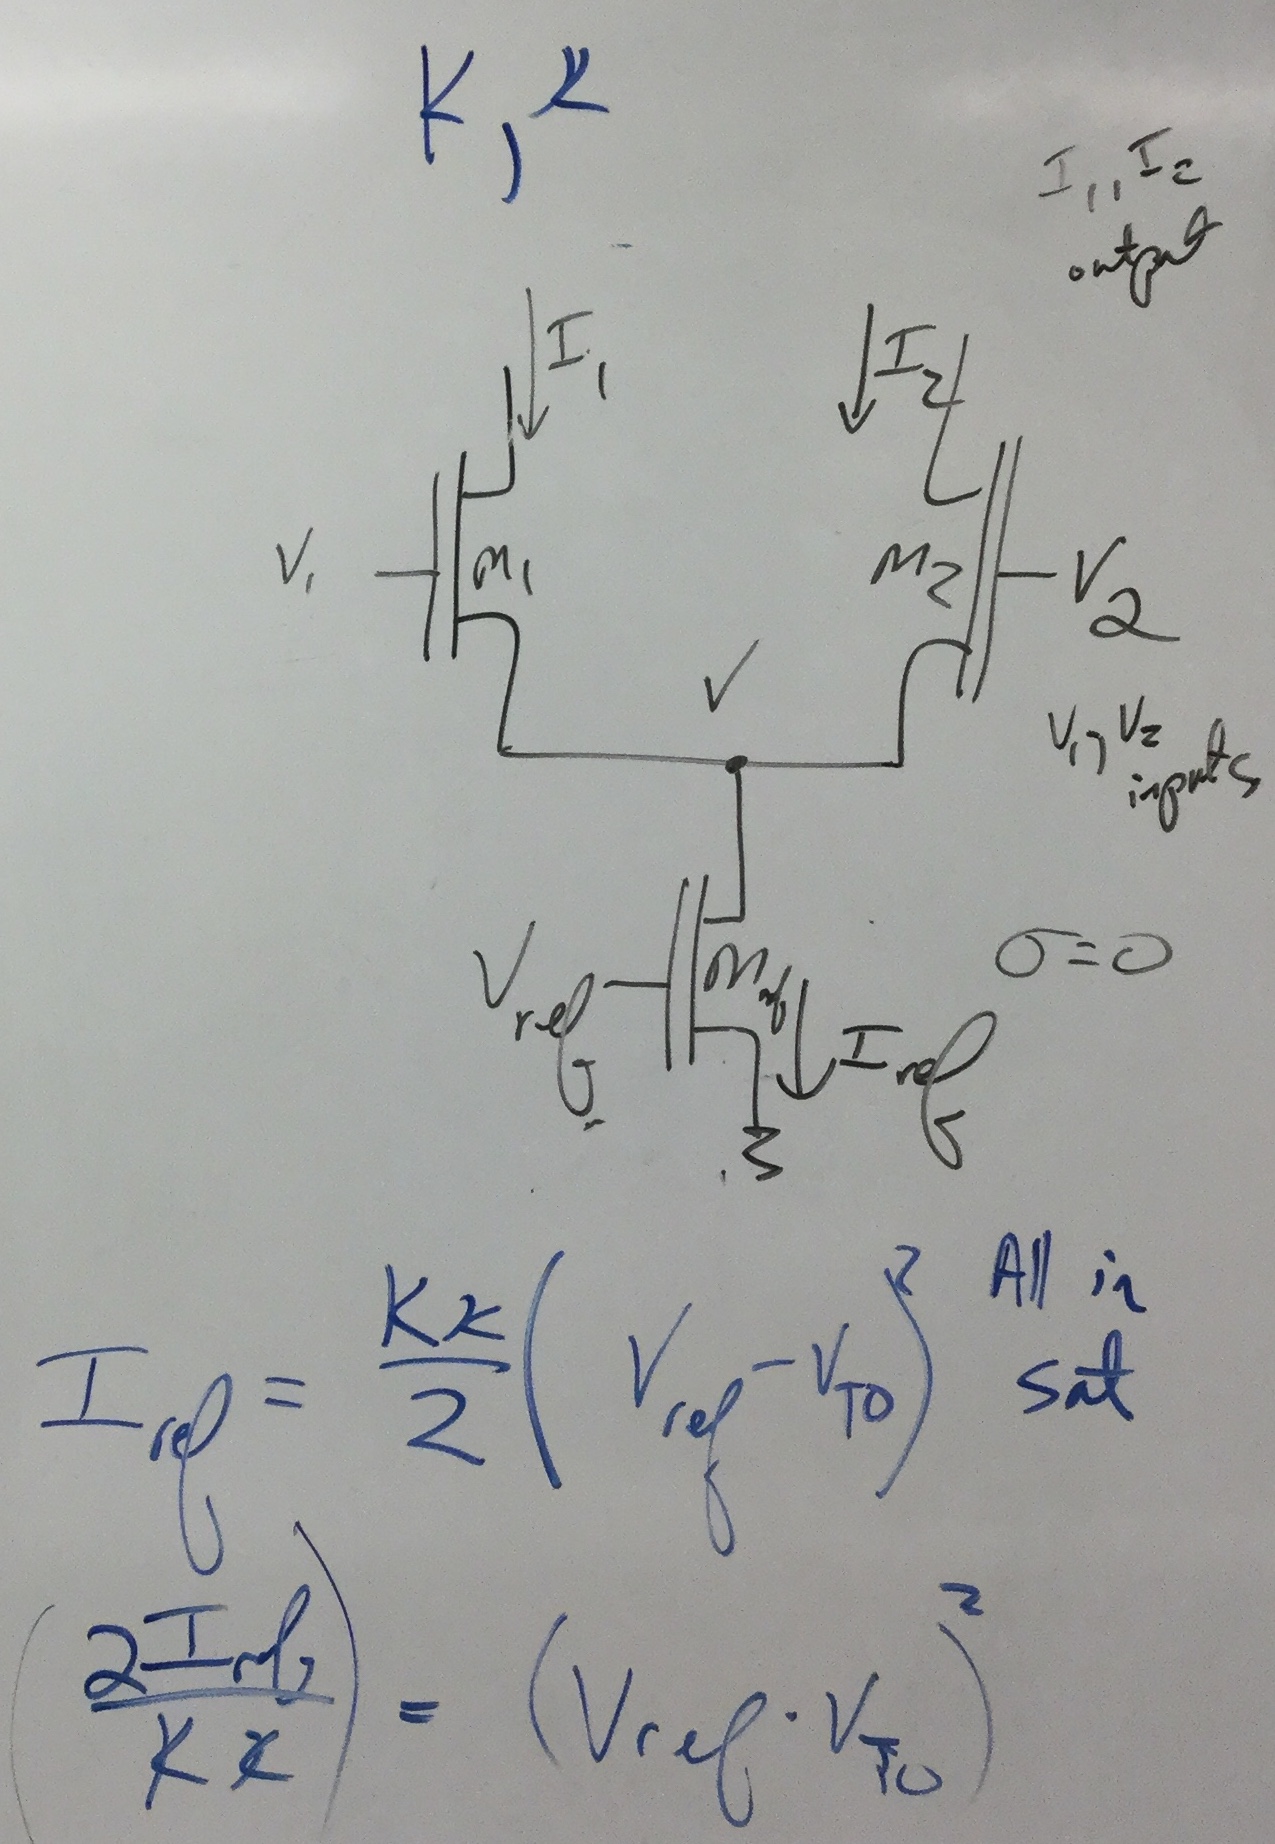 K, κ
I₁, I₂
output
I₁
I₂
V₁
M₁
M₂
V₂
V
V₁, V₂
inputs
V_ref
M_ref
I_ref
σ=0
I_ref = Kκ/2 (V_ref - V_T0)² All in
sat
(2I_ref / Kκ) = (V_ref - V_T0)²